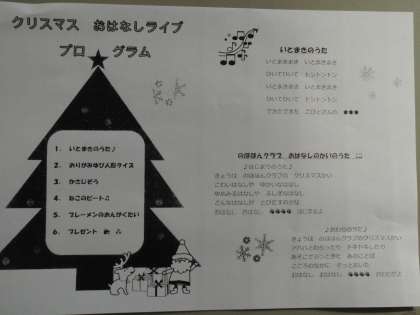 クリスマス おはなしライブ
プログラム
1. いとまきのうた♪
2. おりがみゆび人形クイズ
3. かさじぞう
4. ねこのピート♫
5. ブレーメンのおんがくたい
6. プレゼント
いとまきのうた
いとまきまき いとまきまき
ひいてひいて トントントン
いとまきまき いとまきまき
ひいてひいて トントントン
できたできた こびとさんの ●●●
のほほんクラブ おはなしのかいのうた
♪はじまりのうた♪
きょうは のほほんクラブの クリスマスかい
こわいはなしや ゆかいなはなし
ゆめのはなしや ふしぎなはなし
こんなはなしが とびだすのかな
おはなし おはなし ●●●● はじまるよ
♪おわりのうた♪
きょうは のほほんクラブのクリスマスかい
こころのなかに
おはなし おはなし ●●●●